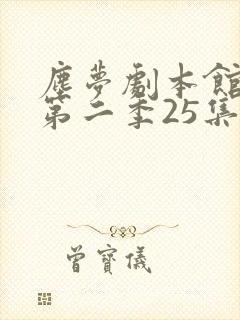 塵夢劇本館
第二季25集
曾寶儀